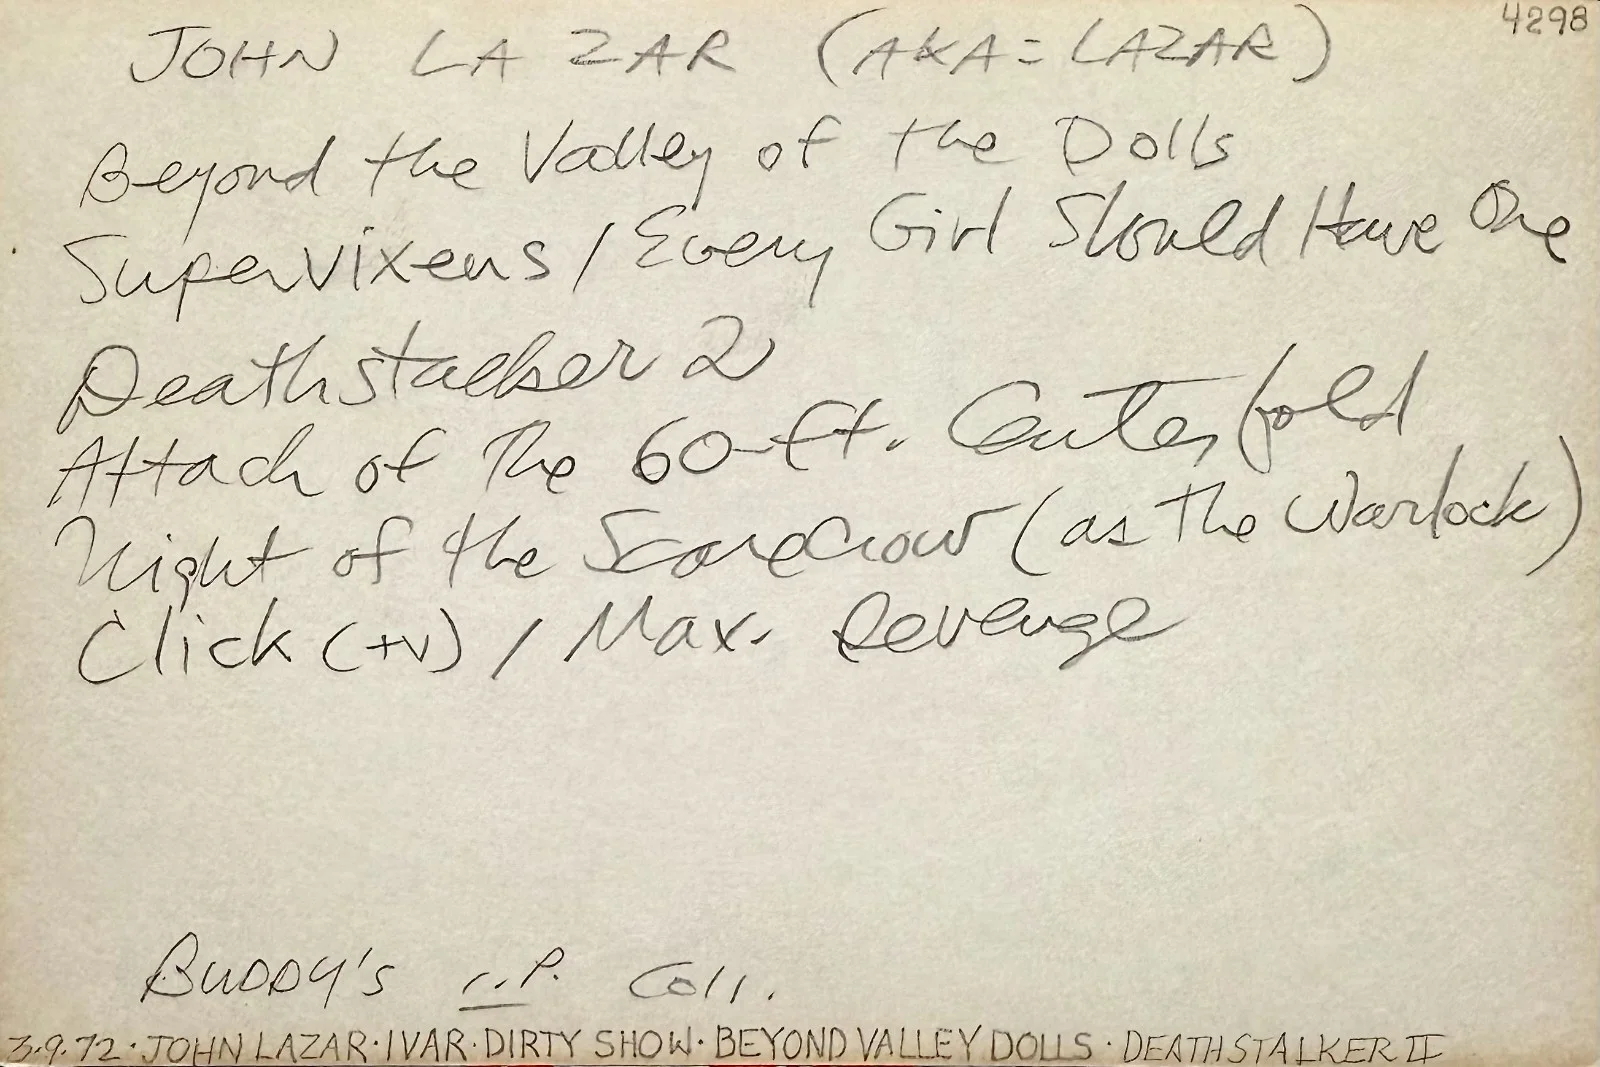 4298
JOHN LA ZAR (AKA = LAZAR)
Beyond the Valley of the Dolls
Supervixens / Every Girl Should Have One
Deathstalker 2
Attack of The 60-ft. Centerfold
Night of the Scarecrow (as The Warlock)
Click (tv) / Max. Revenge
BUDDY'S P. Coll.
3.9.72 · JOHN LAZAR · IVAR · DIRTY SHOW · BEYOND VALLEY DOLLS · DEATHSTALKER II